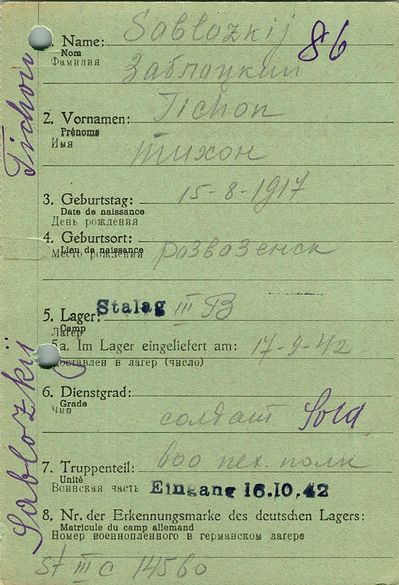 1. Name: Sablozkij
Nom
Фамилия
Заблоцкий
86
2. Vornamen: Tichon
Prénoms
Имя
Тихон
3. Geburtstag: 15-8-1917
Date de naissance
День рождения
4. Geburtsort:
Lieu de naissance
Место рождения розваженск
5. Lager: Stalag III B
Camp
Лагерь
5a. Im Lager eingeliefert am: 17-9-42
Доставлен в лагерь (число)
6. Dienstgrad:
Grade
Чин
солдат Sold
7. Truppenteil: 800 пех. полк
Unité
Воинская часть Eingang 16.10.42
8. Nr. der Erkennungsmarke des deutschen Lagers:
Matricule du camp allemand
Номер военнопленного в германском лагере
St III C 14560
Sablozkij Tichon